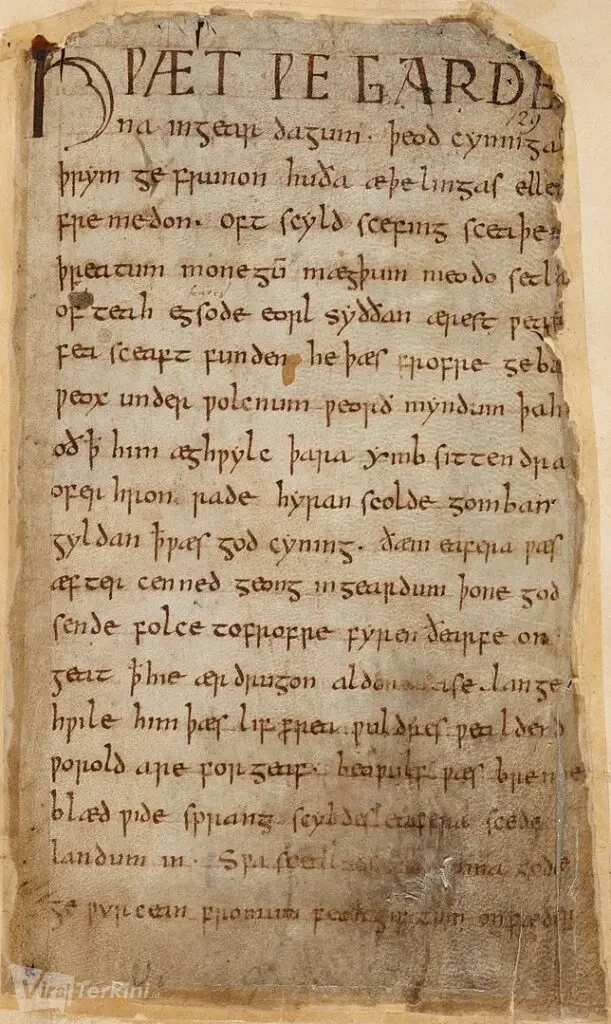 HǷÆT ǷE GARDE
129
na ingear dagum. þeod cyninga
þrym ge frunon huða æþelingas elle
fre medon. oft scyld scefing sceaþe
þreatum monegū mægþum meodo setla
of teah egsode eorl syððan ærest ƿear
fea sceaft funden he þæs frofre geba
ƿeox under ƿolcnum ƿeorð myndum þah
oð ꝥ him æghƿylc þara ymb sittendra
ofer hron rade hyran scolde gomban
gyldan ꝥƿæs god cyning. ðæm eafera ƿæs
æfter cenned geong ingeardum þone god
sende folce tofrofre fyren ðearfe on
geat ꝥhie ær drugon aldor ase. lange
hƿile him þæs lif frea ƿuldres ƿealdend
ƿorold are for geaf. beoƿulf ƿæs breme
blæd ƿide sprang scyldes eafera scede
landum in. Sƿa sceal gode
ge ƿyrcean fromum feoh giftum on fæder
Viral Terkini